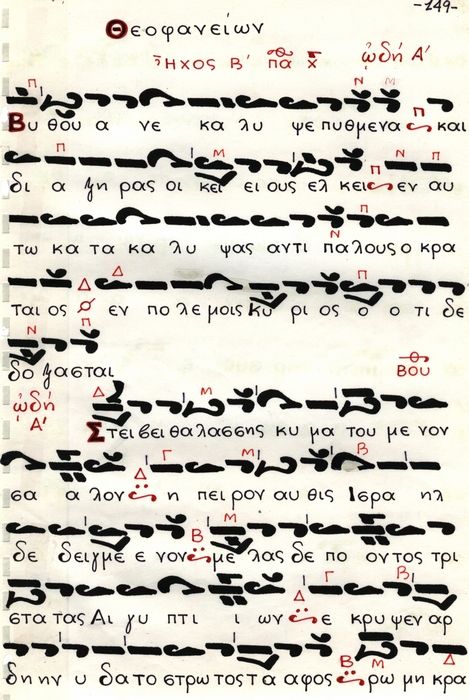 -149-
Θεοφανείων
Ἦχος Β' πα χ ᾠδή Α'
Π Ν Μ
Βυ θου α νε κα λυ ψε πυθμενα Π και
Π Μ Π Ν Π
δι α ξη ρας οι κει ει ους ελ κει εν αυ
Ν Π
τω κα τα κα λυ ψας αντι παλους ο κρα
Δ Δ Π
ται ος εν πο λε μοις κυ ρι ος ο ο τι δε
Ν Π
δο ξασται
Βου
ᾠδή Α'
Δ Μ
Στει βει θαλασσης κυ μα του με νον
Δ Γ Μ Β
σα α λον η πει ρον αυ θις Ισρα ηλ
Β Μ
δε δειγμε ε νον με λας δε πο ον τος τρι
Δ Γ Β Δ
στα τας Αι γυ πτι ι ων ε κρυ ψεν αρ
Β Μ Δ
δη ην υ δα το στρω τος τα αφος ρω μη κρα